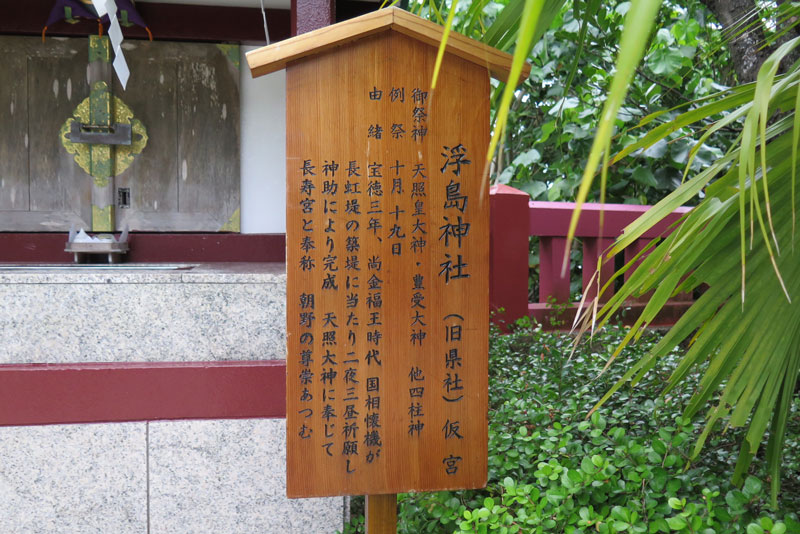 浮島神社（旧県社）仮宮
御祭神　天照皇大神・豊受大神　他四柱神
例祭　十月十九日
由緒　宝徳三年、尚金福王時代　国相懐機が
長虹堤の築堤に当たり二夜三昼祈願し
神助により完成　天照大神に奉じて
長寿宮と奉称　朝野の尊崇あつむ